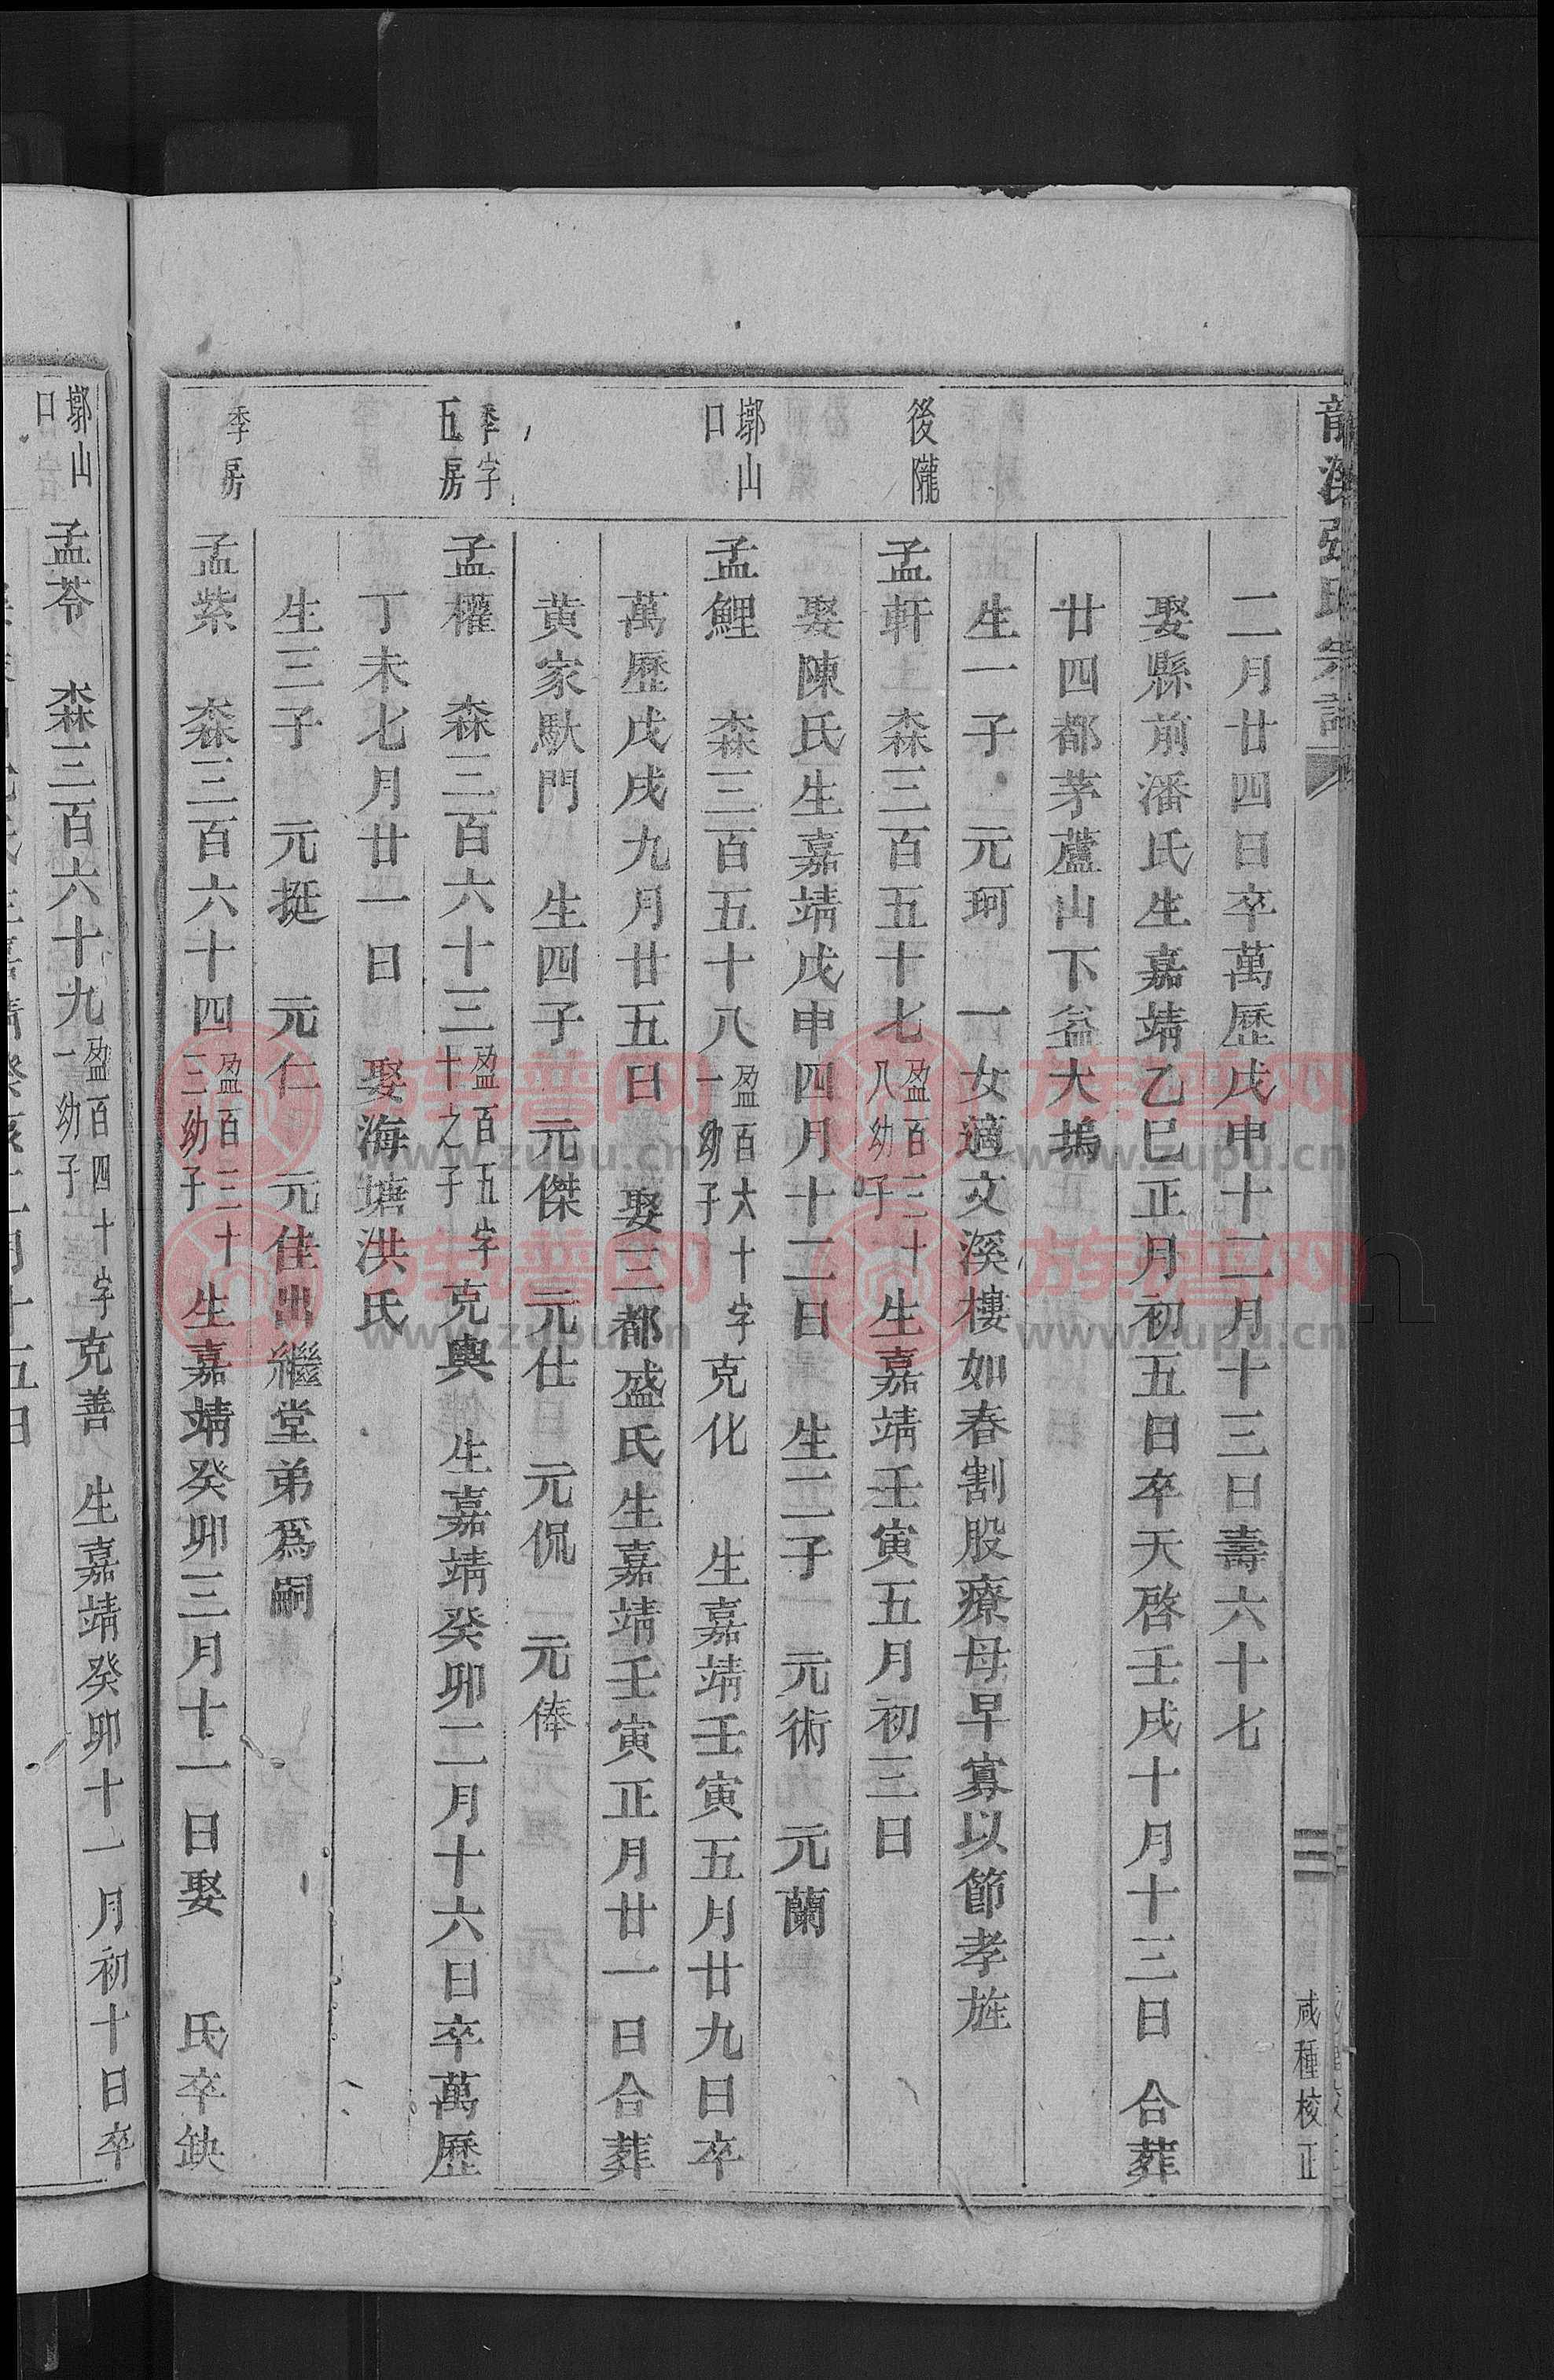 張氏宗譜
咸種校正
二月廿四日卒萬歷戊申十二月十三日壽六十七
娶縣前潘氏生嘉靖乙巳正月初五日卒天啓壬戌十月十三日 合葬
廿四都茅蘆山下益大塢
生一子 元珂 一女適文溪樓如春割股療母早寡以節孝旌
後隴
孟軒 森三百五十七 盈百三十八幼子 生嘉靖壬寅五月初三日
娶陳氏生嘉靖戊申四月十二日 生二子 元術 元蘭
鄣山口
孟鯉 森三百五十八 盈百六十一幼子 字克化 生嘉靖壬寅五月廿九日卒
萬歷戊戌九月廿五日 娶三都盛氏生嘉靖壬寅正月廿一日合葬
黄家畈門 生四子 元傑 元仕 元侃 元俸
季字五房
孟權 森三百六十三 盈百五十之子 字克輿 生嘉靖癸卯二月十六日卒萬歷
丁未七月廿一日 娶海塘洪氏
生三子 元挺 元仁 元佳出繼堂弟爲嗣
季房
孟紫 森三百六十四 盈百三十三幼子 生嘉靖癸卯三月十一日娶 氏卒缺
鄣山口
孟苓 森三百六十九 盈百四十一幼子 字克善 生嘉靖癸卯十一月初十日卒
www.zupu.cn
族譜网
www.zupu.cn
族譜网
www.zupu.cn
族譜网
www.zupu.cn
族譜网